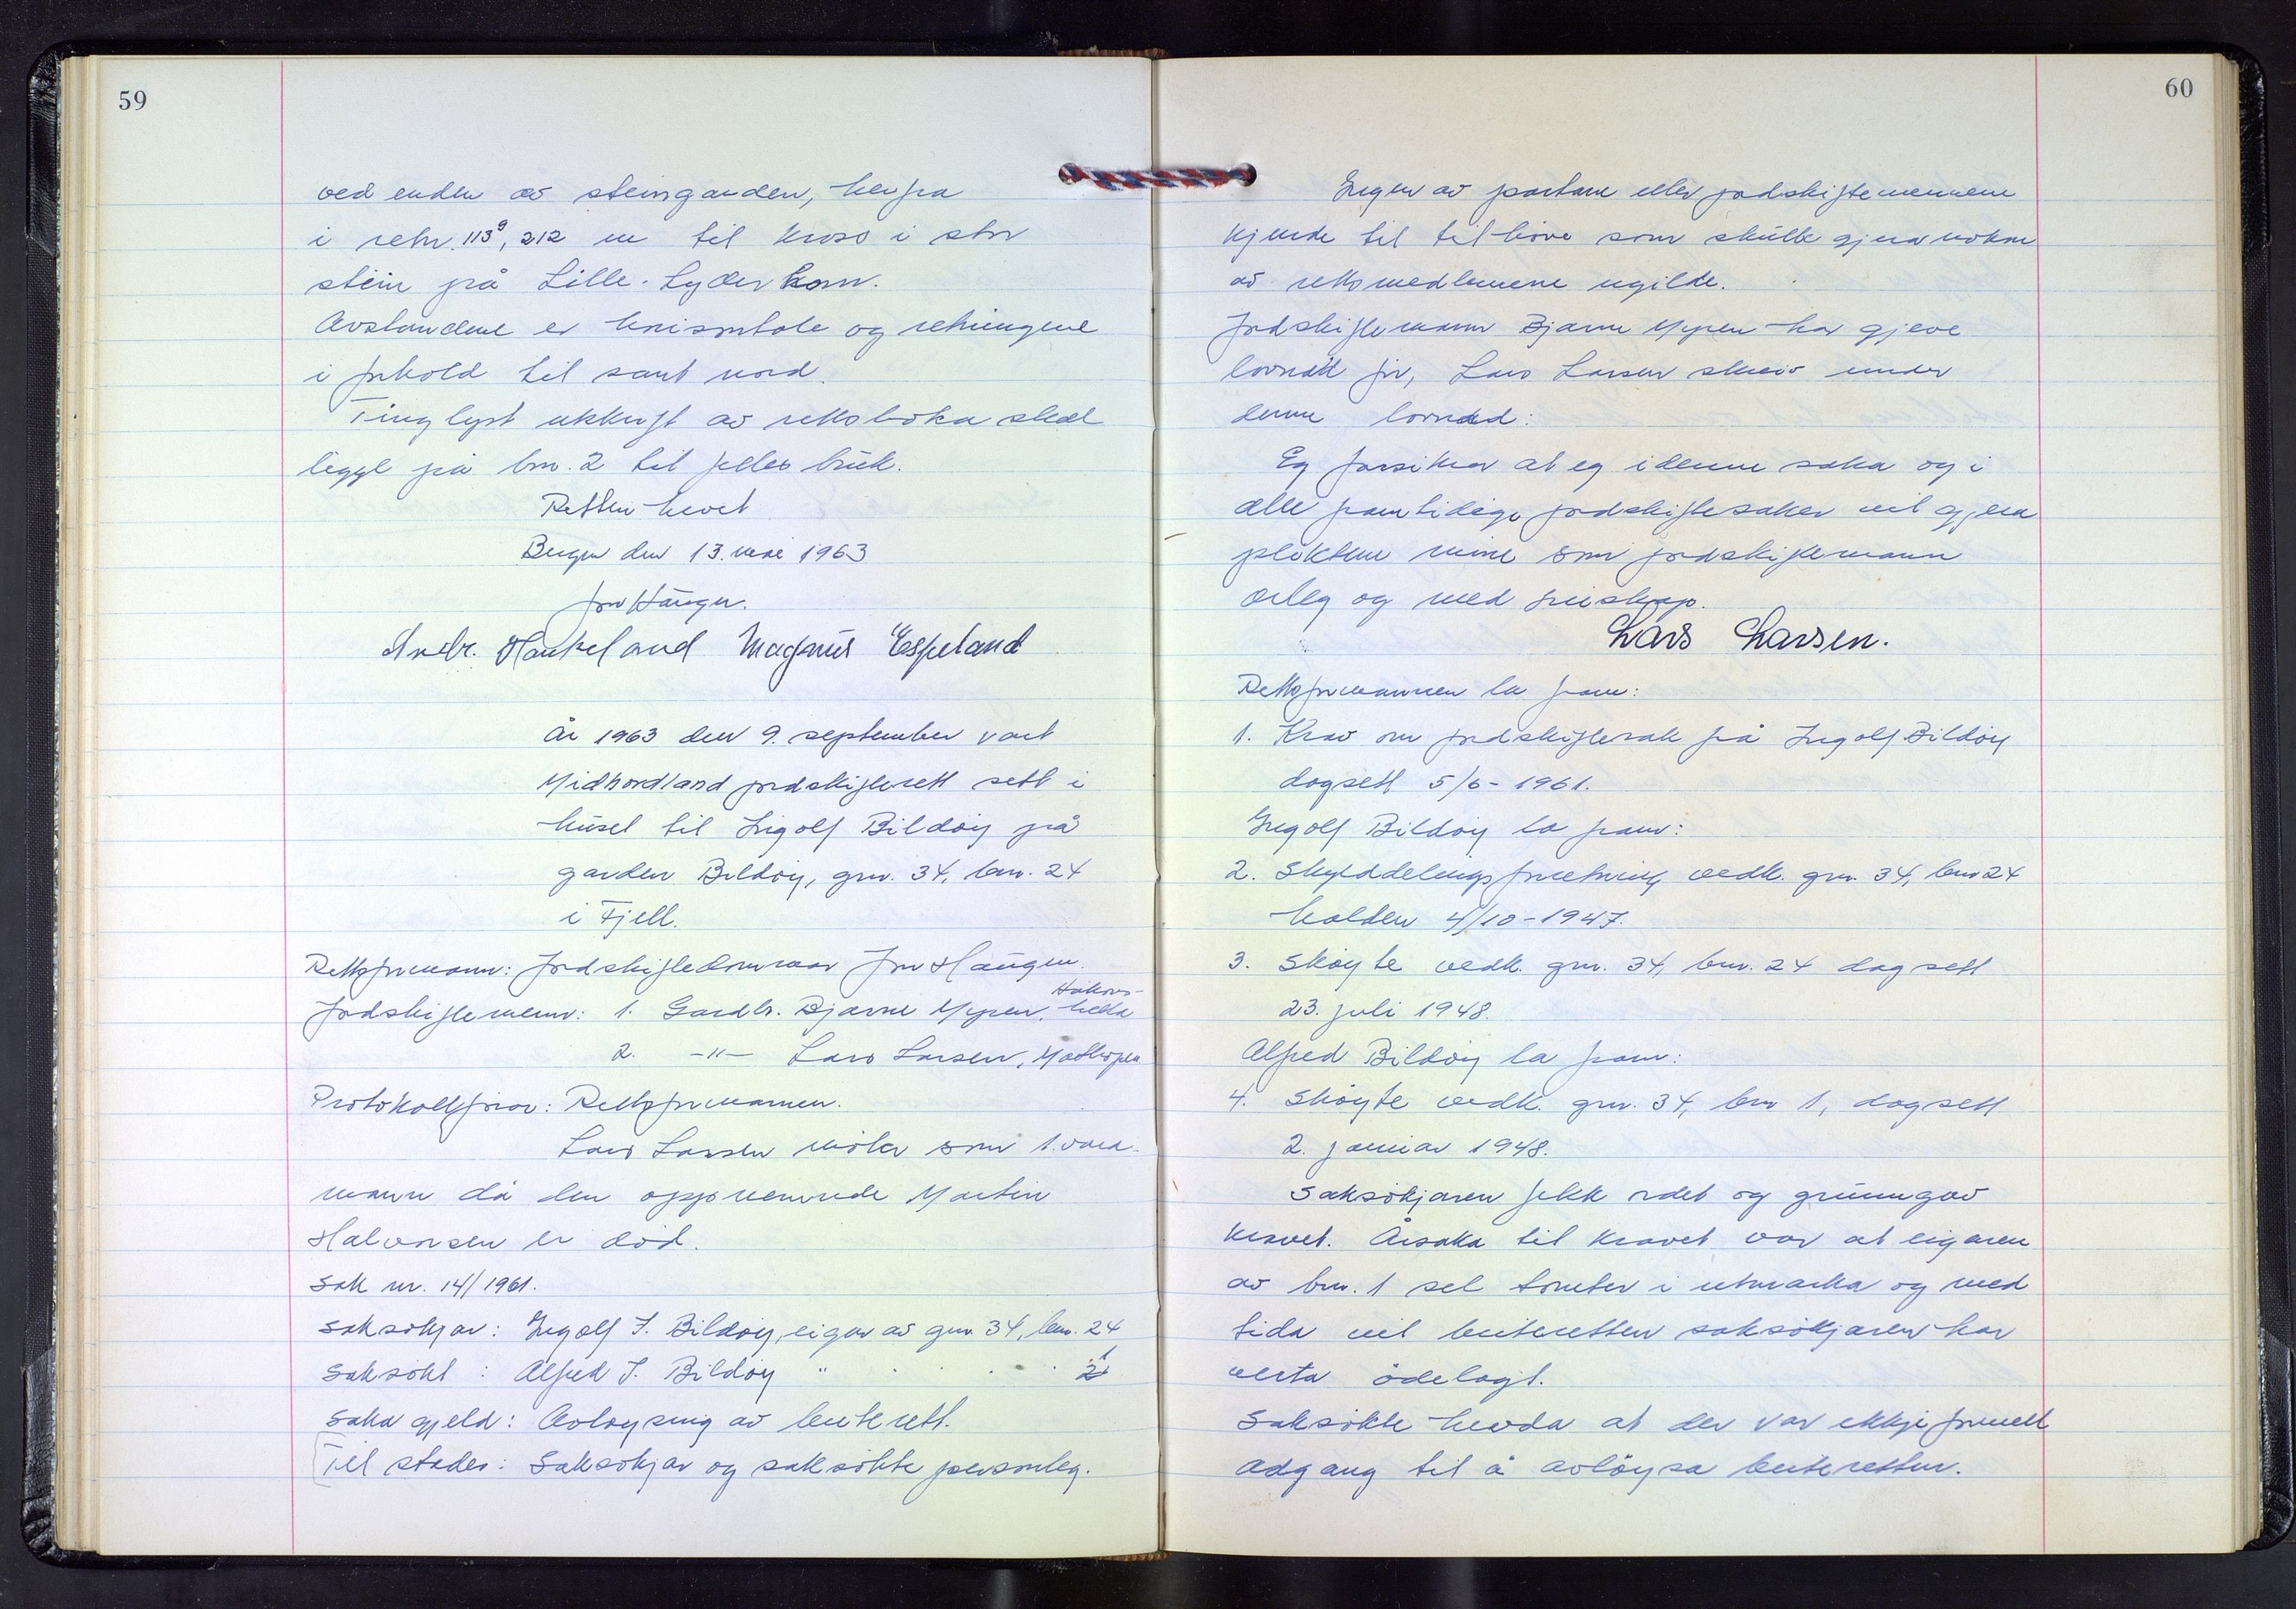 59
ved enden av steingarden, herfra
i retn. 113ᵍ, 212 m til kross i stor
stein på Lille-Lyderhorn.
Avstandene er horisontale og retningene
i forhold til sant nord.
Tinglyst utskrift av rettsboka skal
liggje på bnr. 2 til felles bruk.
Retten hevet
Bergen den 13. mai 1963
Jon Haugen.
Andr. Haukeland Magnus Espeland
År 1963 den 9. september vart
Midhordland jordskifterett sett i
huset til Ingolf Bildøy på
garden Bildøy, gnr. 34, bnr. 24
i Fjell.
Rettsformann: Jordskiftedommar Jon Haugen.
Jordskiftemenn: 1. Gardbr. Bjarne Myren, Håkonshella
2. -"- Lars Larsen, Mathopen
Protokollførar: Rettsformannen.
Lars Larsen møter som 1. vara-
mann då den oppnemnde Martin
Halvorsen er død.
Sak nr. 14/1961.
Saksøkjar: Ingolf J. Bildøy, eigar av gnr. 34, bnr. 24
Saksøkt: Alfred J. Bildøy " . . . . 1
Saka gjeld: Avløysing av beiterett.
Til stades: Saksøkjar og saksøkte personleg.
60
Ingen av partane eller jordskiftemennene
kjende til tilhøve som skulle gjera nokon
av rettsmedlemene ugilde.
Jordskiftemann Bjarne Myren har gjeve
lovnad før, Lars Larsen skreiv under
denne lovnad:
Eg forsikrar at eg i denne saka og i
alle framtidige jordskiftesaker vil gjera
pliktene mine som jordskiftemann
ærleg og med friskap.
Lars Larsen.
Rettsformannen la fram:
1. Krav om jordskiftesak frå Ingolf Bildøy
dagsett 5/6-1961.
Ingolf Bildøy la fram:
2. Skylddelingsforretning vedk. gnr. 34, bnr 24
halden 4/10-1947.
3. Skøyte vedk. gnr. 34, bnr. 24 dagsett
23. juli 1948.
Alfred Bildøy la fram:
4. Skøyte vedk. gnr. 34, bnr 1, dagsett
2. januar 1948.
Saksøkjaren fekk ordet og grunngav
kravet. Årsaka til kravet var at eigaren
av bnr. 1 sel tomter i utmarka og med
tida vil beiteretten saksøkjaren har
verta ödelagt.
Saksøkte hevda at der var ikkje formell
adgang til å avløysa beiteretten.